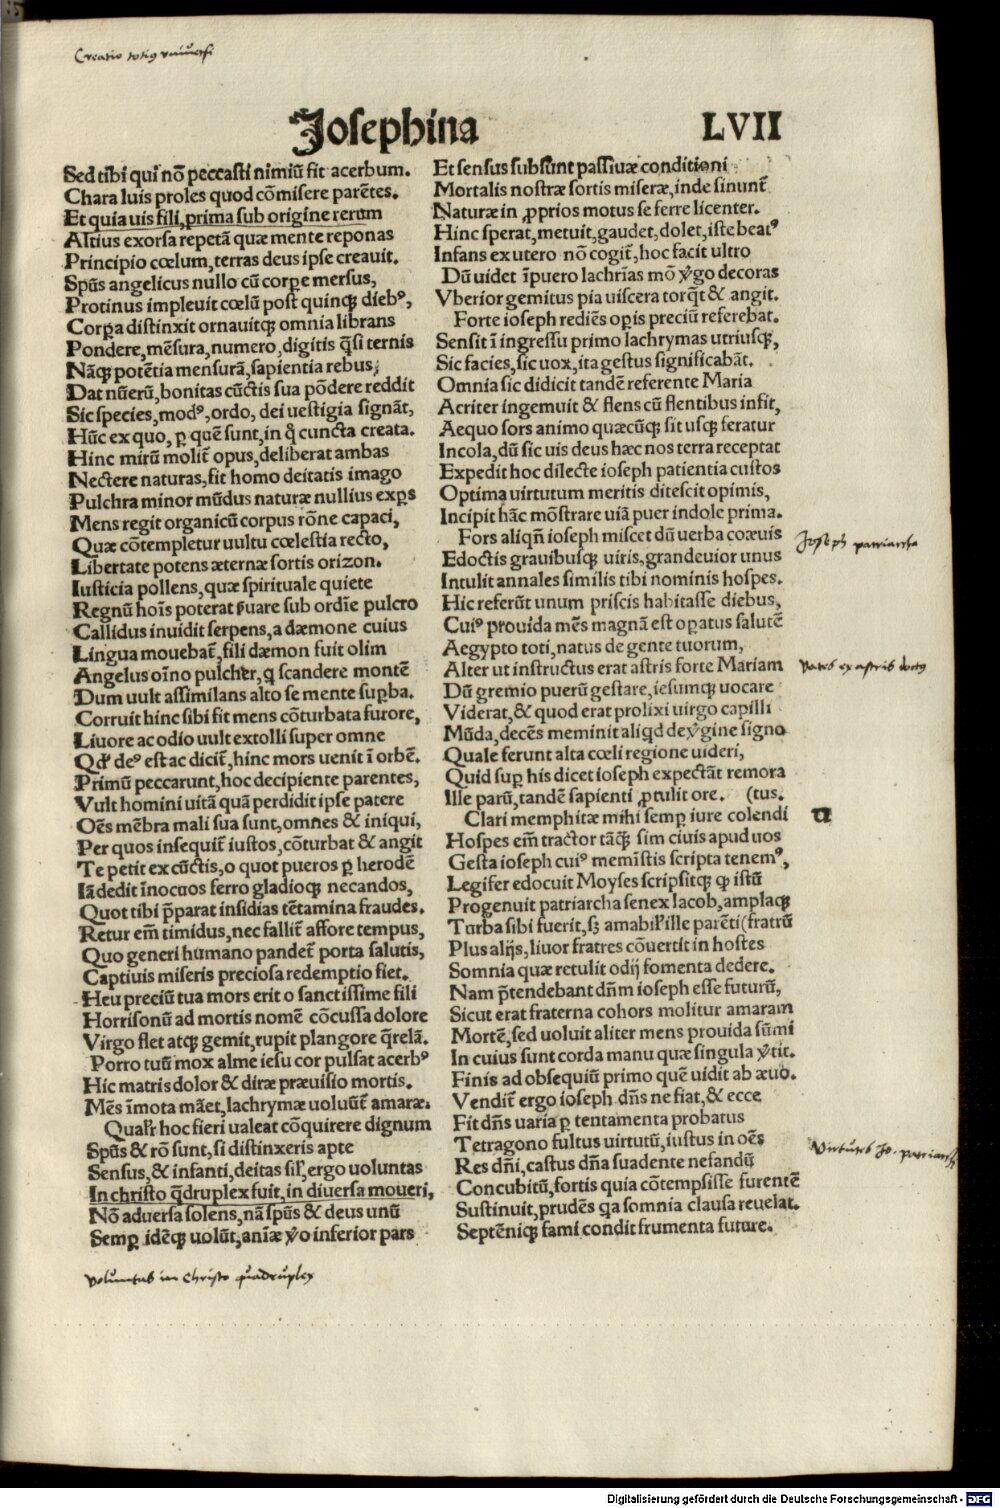 Creatio totiꝰ vniuersi
Josephina
LVII
Sed tibi qui nō peccasti nimiū fit acerbum.
Chara luis proles quod cōmisere parētes.
Et quia uis fili, prima sub origine rerum
Altius exorsa repetā quæ mente reponas
Principio cœlum, terras deus ipse creauit.
Spūs angelicus nullo cū corꝑe mersus,
Protinus impleuit cœlū post quinqꝫ diebꝰ,
Corꝑa distinxit ornauitqꝫ omnia librans
Pondere, mēsura, numero, digitis q̄si ternis
Nāqꝫ potētia mensurā, sapientia rebus,
Dat nūerū, bonitas cūctis sua pōdere reddit
Sic species, modꝰ, ordo, dei uestigia signāt,
Hūc ex quo, ꝑ quē sunt, in q̊ cuncta creata.
Hinc mirū molit̄ opus, deliberat ambas
Nectere naturas, fit homo deitatis imago
Pulchra minor mūdus naturæ nullius exꝑs
Mens regit organicū corpus rōne capaci,
Quæ cōtempletur uultu cœlestia recto,
Libertate potens æternæ sortis orizon.
Iusticia pollens, quæ spirituale quiete
Regnū hoīs poterat ẜuare sub ordīe pulcro
Callidus inuidit serpens, a dæmone cuius
Lingua mouebat̄, fili dæmon fuit olim
Angelus oīno pulcher, q scandere montē
Dum uult assimilans alto se mente suꝑba.
Corruit hinc sibi fit mens cōturbata furore,
Liuore ac odio uult extolli super omne
Qd̓ deꝰ est ac dicit̄, hinc mors uenit ī orbē.
Primū peccarunt, hoc decipiente parentes,
Vult homini uitā quā perdidit ipse patere
Oēs mēbra mali sua sunt, omnes & iniqui,
Per quos insequit̄ iustos, cōturbat & angit
Te petit ex cūctis, o quot pueros ꝑ herodē
Iā dedit īnocuos ferro gladioqꝫ necandos,
Quot tibi p̄parat insidias tētamina fraudes.
Retur em̄ timidus, nec fallit̄ affore tempus,
Quo generi humano pandet̄ porta salutis,
Captiuis miseris preciosa redemptio fiet.
Heu preciū tua mors erit o sanctissime fili
Horrisonū ad mortis nomē cōcussa dolore
Virgo flet atqꝫ gemit, rupit plangore q̄relā.
Porro tuū mox alme iesu cor pulsat acerbꝰ
Hic matris dolor & diræ præuisio mortis.
Mēs īmota māet, lachrymæ uoluūt̄ amaræ.
Qualr̄ hoc fieri ualeat cōquirere dignum
Spūs & rō sunt, si distinxeris apte
Sensus, & infanti, deitas sil̓, ergo uoluntas
In christo q̄druplex fuit, in diuersa moueri,
Nō aduersa solens, nā spūs & deus unū
Semꝑ idēqꝫ uolūt, anīæ ꝟo inferior pars
voluntas in Christo quadruplex
Et sensus subsunt passiuæ conditioni
Mortalis nostræ sortis miseræ, inde sinunt̄
Naturæ in ꝓprios motus se ferre licenter.
Hinc sperat, metuit, gaudet, dolet, iste beatꝰ
Infans ex utero nō cogit̄, hoc facit ultro
Dū uidet īpuero lachrīas mō ꝟgo decoras
Vberior gemitus pia uiscera torq̄t & angit.
Forte ioseph rediēs oꝑis preciū referebat.
Sensit ī ingressu primo lachrymas utriusqꝫ,
Sic facies, sic uox, ita gestus significabāt.
Omnia sic didicit tandē referente Maria
Acriter ingemuit & flens cū flentibus infit,
Aequo sors animo quæcūqꝫ sit usqꝫ feratur
Incola, dū sic uis deus hæc nos terra receptat
Expedit hoc dilecte ioseph patientia custos
Optima uirtutum meritis ditescit opimis,
Incipit hāc mōstrare uiā puer indole prima.
Fors aliqn̄ ioseph miscet dū uerba coæuis
Edoctis grauibusqꝫ uiris, grandeuior unus
Intulit annales similis tibi nominis hospes.
Hic referūt unum priscis habitasse diebus,
Cuiꝰ prouida mēs magnā est oꝑatus salutē
Aegypto toti, natus de gente tuorum,
Alter ut instructus erat astris forte Mariam
Dū gremio puerū gestare, iesumqꝫ uocare
Viderat, & quod erat prolixi uirgo capilli
Mūda, decēs meminit aliqd de ꝟgine signo
Quale ferunt alta cœli regione uideri,
Quid suꝑ his dicet ioseph expectāt remora
Ille parū, tandē sapienti ꝓtulit ore. (tus.
Clari memphitæ mihi semꝑ iure colendi
Hospes em̄ tractor tāqꝫ sim ciuis apud uos
Gesta ioseph cuiꝰ memīstis scripta tenemꝰ,
Legifer edocuit Moyses scripsitqꝫ ꝙ istū
Progenuit patriarcha senex Iacob, amplaqꝫ
Turba sibi fuerit, sꝫ amabil̓ ille parēti (fratrū
Plus alijs, liuor fratres cōuertit in hostes
Somnia quæ retulit odij fomenta dedere.
Nam p̄tendebant dn̄m ioseph esse futurū,
Sicut erat fraterna cohors molitur amaram
Mortē, sed uoluit aliter mens prouida sūmi
In cuius sunt corda manu quæ singula ꝟtit.
Finis ad obsequiū primo quē uidit ab æuo.
Vendit̄ ergo ioseph dn̄s ne fiat, & ecce
Fit dn̄s uaria ꝑ tentamenta probatus
Tetragono fultus uirtutū, iustus in oēs
Res dn̄i, castus dn̄a suadente nefandū
Concubitū, fortis quia cōtempsisse furentē
Sustinuit, prudēs qa somnia clausa reuelat.
Septēniqꝫ fami condit frumenta future.
Joseph patriarcha
vates ex astris doctꝰ
Virtutes Jo. patriarch